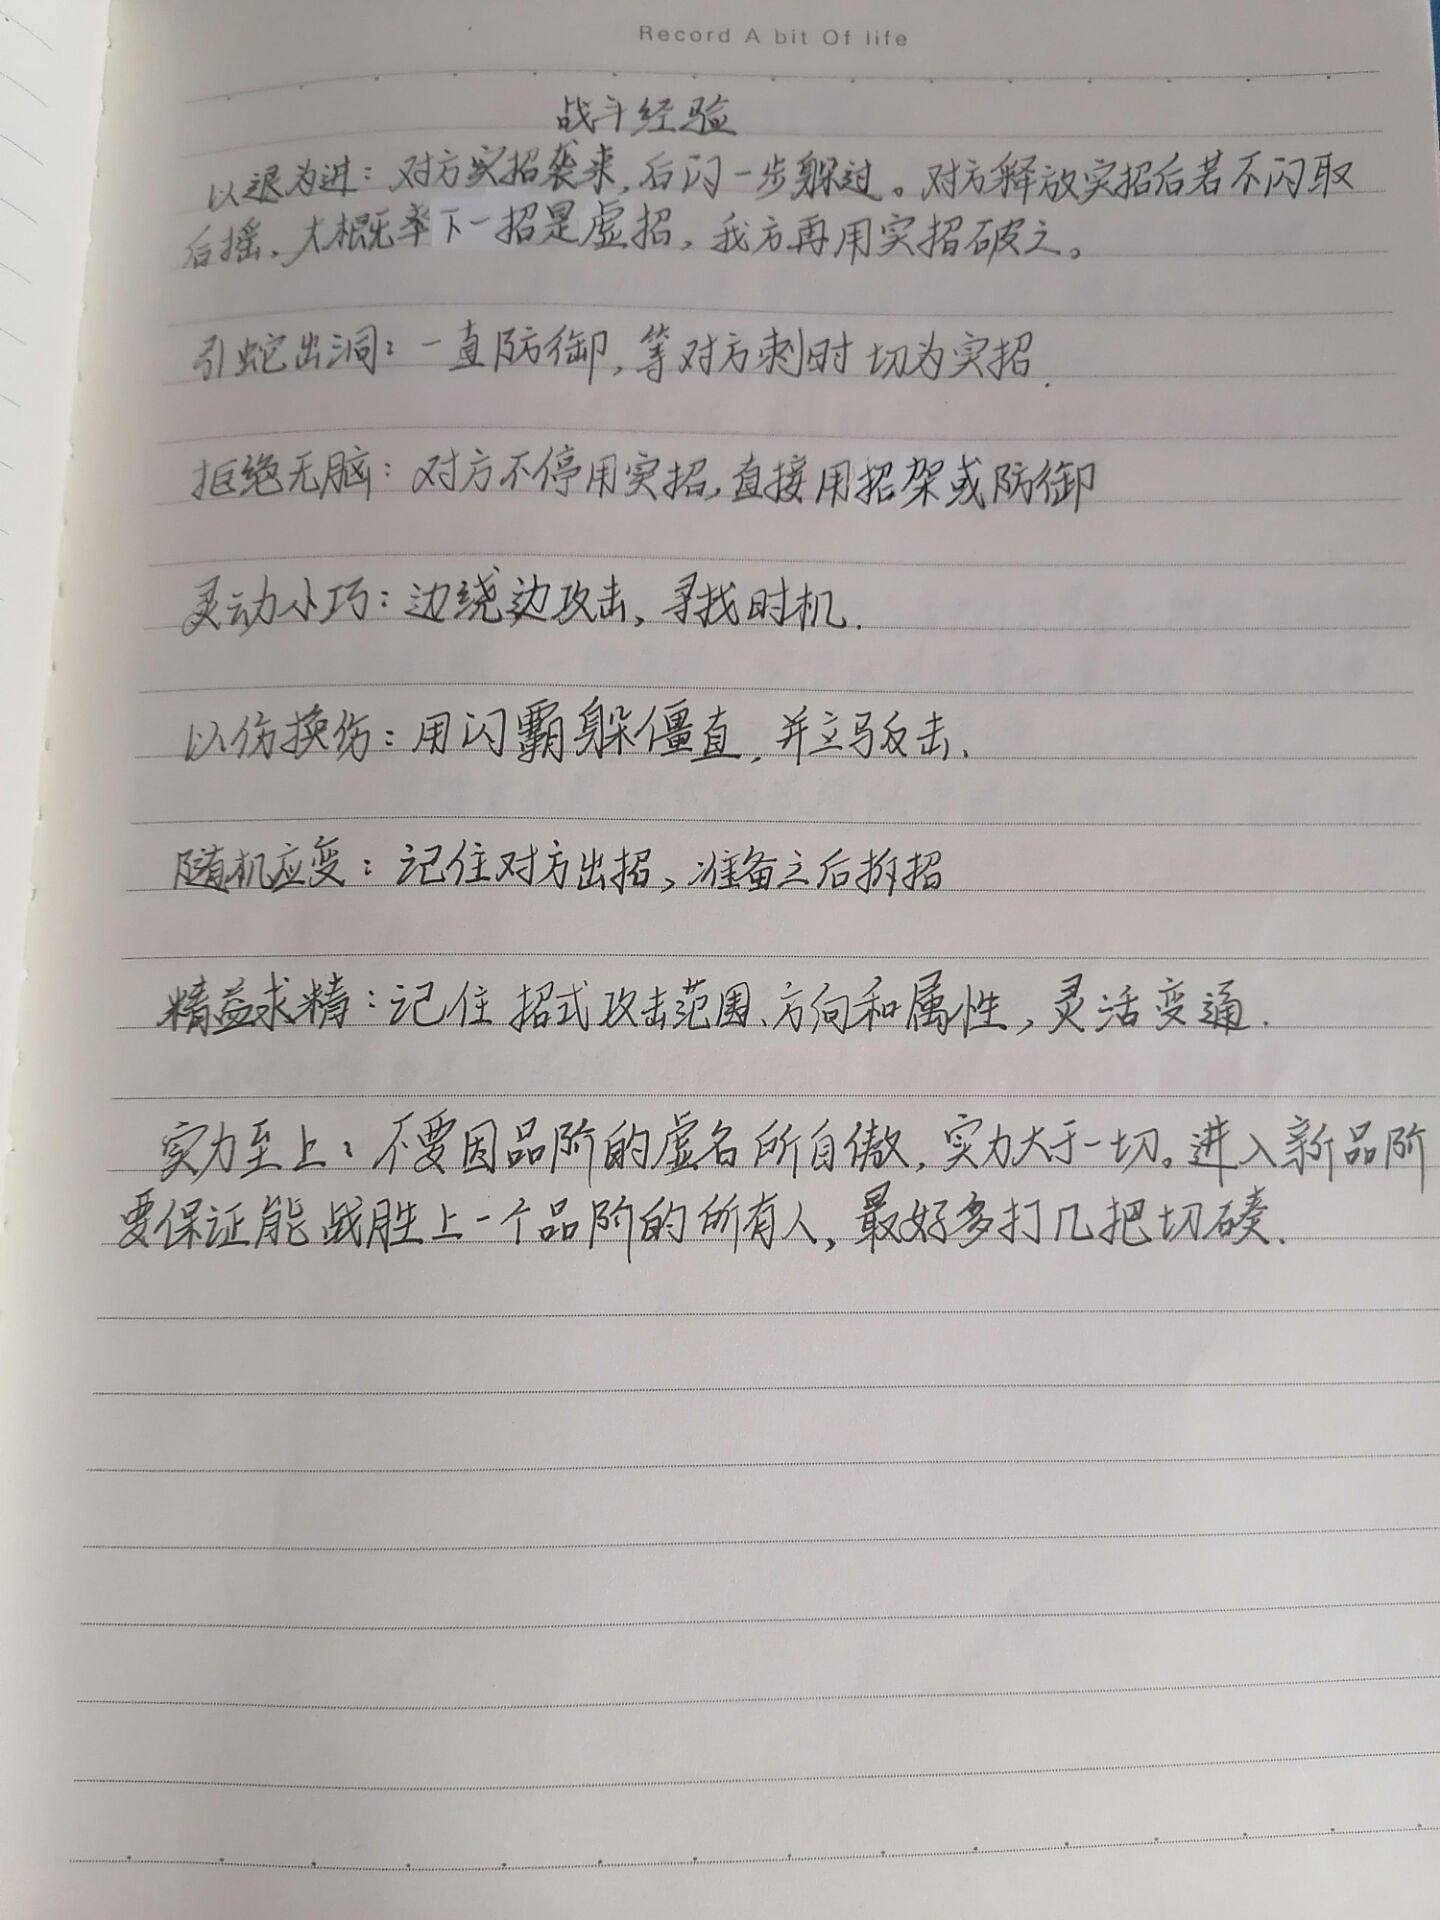 Record A bit Of life
战斗经验
以退为进：对方实招袭来，后闪一步躲过。对方释放实招后若不闪取
后摇，大概率下一招是虚招，我方再用实招破之。
引蛇出洞：一直防御，等对方刺时切为实招.
拒绝无脑：对方不停用实招，直接用招架或防御
灵动小巧：边绕边攻击，寻找时机.
以伤换伤：用闪霸躲僵直，并立马反击.
随机应变：记住对方出招，准备之后拆招
精益求精：记住招式攻击范围、方向和属性，灵活变通.
实力至上：不要因品阶的虚名所自傲，实力大于一切。进入新品阶
要保证能战胜上一个品阶的所有人，最好多打几把切磋.